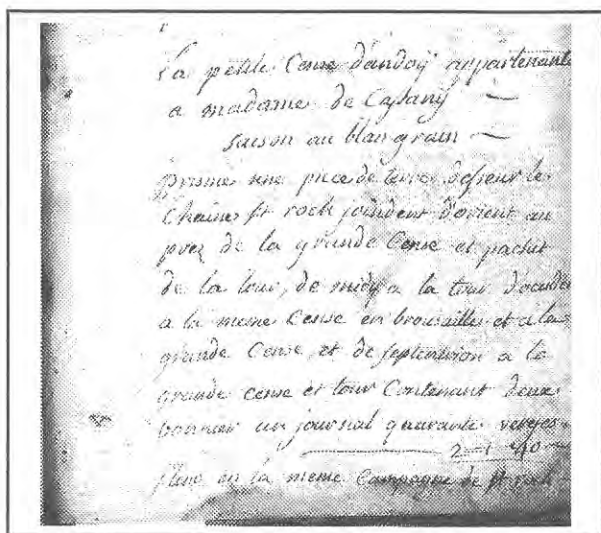 La petite Cense d'andoÿ appartenante
a madame de Cassanÿ
saison au blan grain
prime une piece de terre deseur le
Chaine st roch joindent d'orient au
prez de la grande Cense et pachit
de la tour, de midÿ a la tour d'occident
a la meme Cense en brousailles et a la
grande Cense, et de septentrion a la
grande cense et tour Contenant deux
bonnier un journal quarante verges
2-1-40
plus en la meme Campagne de st roch